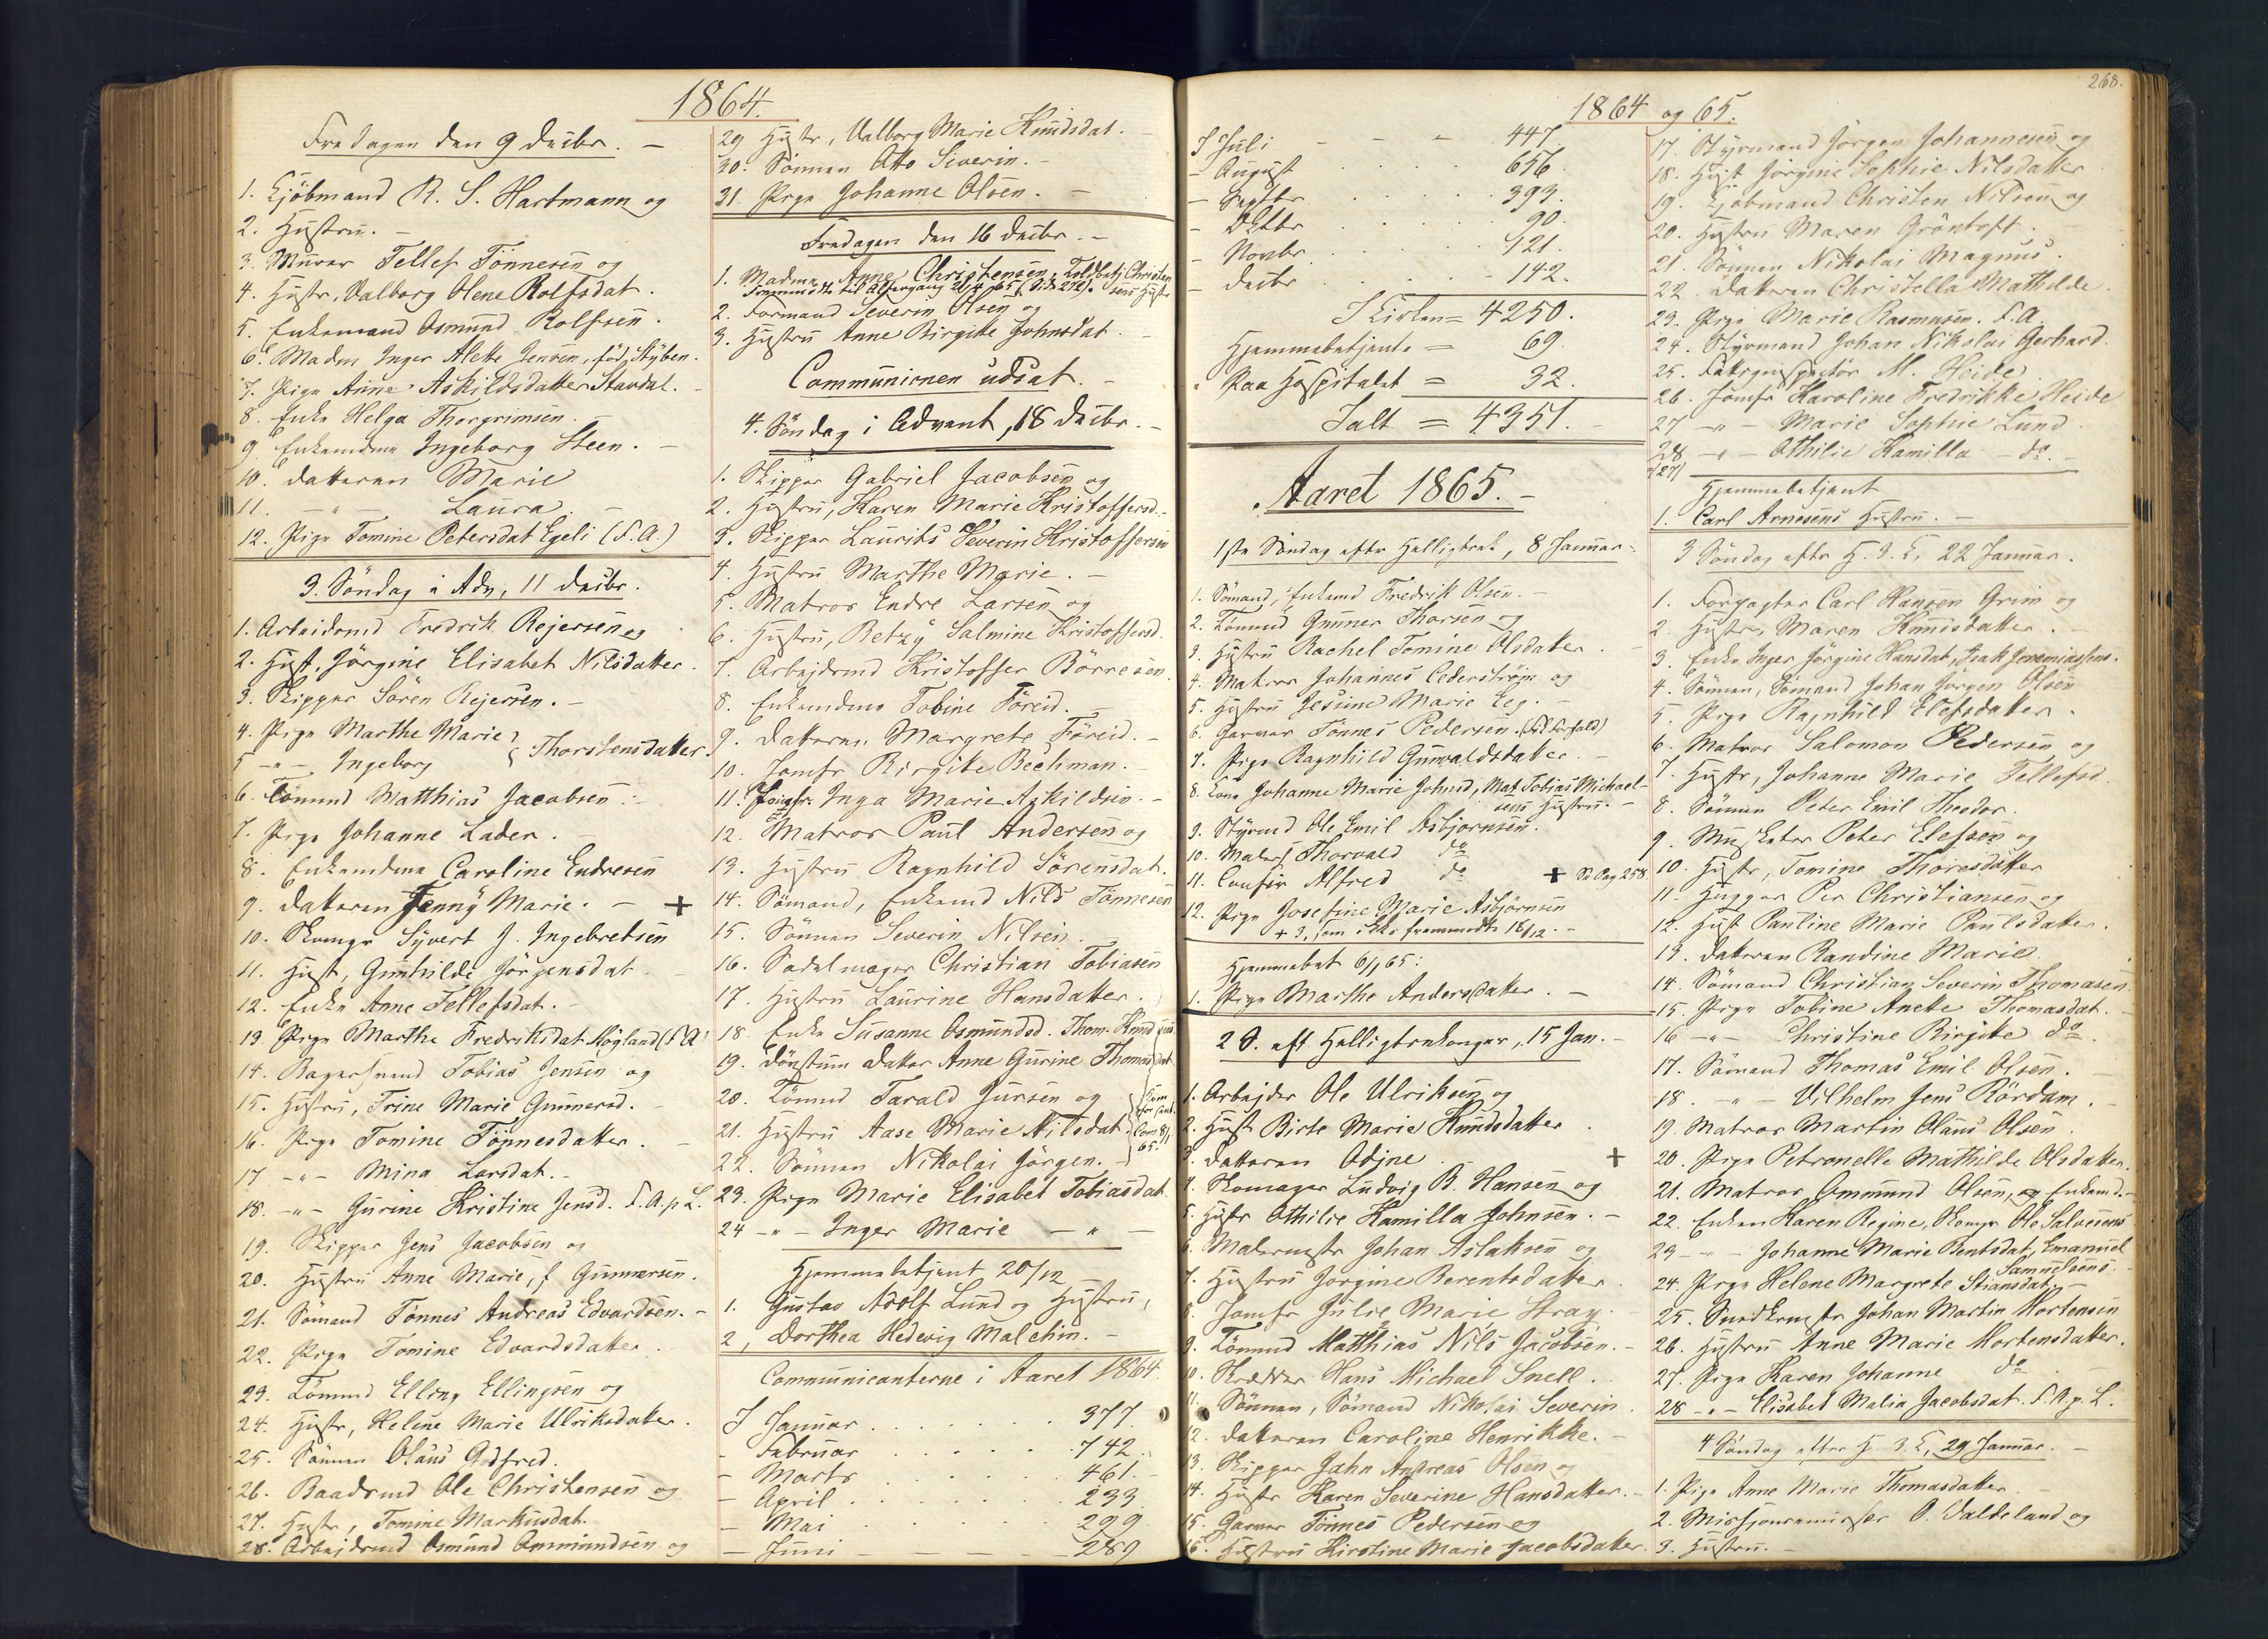 1864.
Fredagen den 9 Decbr. –
1. Kjøbmand R. S. Hartmann og
2. Hustru. –
3. Murer Tellef Tönnesen og
4. Hustr, Valborg Olene Rolfsdat.
5. Enkemand Osmund Rolfsen.
6. Madm Inger Alette Jensen, föd Stÿben.
7. Pige Anne Askildsdatter Staudal. –
8. Enke Helga Thorgrimsen. –
9. Enkemdme Ingeborg Steen. –
10. Datteren Marie
11. – " – Laura. –
12. Pige Tomine Petersdat Egeli (F. A.)
3. Söndag i Adv, 11 Decbr.
1. Arbeidsmd Fredrik Rejersen og
2. Hust, Jörgine Elisabet Nilsdatter.
3. Skipper Sören Rejersen. –
4. Pige Marthe Marie } Thorstensdatter.
5 – " – Ingeborg
6. Tömmd Matthias Jacobsen. –
7. Pige Johanne Lader. –
8. Enkemdme Caroline Endresen
9. Datteren Jenny Marie. – +
10. Skomgr Syvert J. Ingebretsen
11. Hust, Gunhilde Jörgensdat –
12. Enke Anne Tellefsdat. –
13. Pige Marthe Fredriksdat Högland (F A)
14. Bagersvend Tobias Jensen og
15. Hustru, Trine Marie Gunnersd. –
16. Pige Tomine Tönnesdatter. –
17 – " – Mina Larsdat. –
18. – " – Gurine Kristine Jensd. F. A. p L.
19. Skipper Jens Jacobsen og
20. Hustru Anne Marie, f Gunnersen.
21. Sömand Tönnes Andreas Edvardsen. –
22. Pige Tomine Edvardsdatter.
23. Tömmd Elling Ellingsen og
24. Hustr, Helene Marie Ulriksdatter.
25. Sönnen Olaus Godfred.
26. Baadsmd Ole Christensen og
27. Hustr, Tomine Markusdat.
28. Arbejdsmd Osmund Ommundsen og
29 Hustr, Valborg Marie Knudsdat. –
30. Sönnen Otto Siverin. –
31. Pige Johanne Olsen. –
Fredagen den 16 Decbr. –
1. Madme Anne Christensen, Toldbetj Christen
sens Hustr
2. Formand Severin Olsen og
3. Hustru Anne Birgitte Johnsdat. –
Communionen udsat. –
4. Söndag i Advent, 18 Decbr. –
1. Skipper Gabriel Jacobsen og
2. Hustru, Karen Marie Kristoffersd. –
3. Skipper Laurits Severin Kristoffersen
4. Hustru Marthe Marie. –
5. Matros Endre Larsen og
6. Hustru, Betzÿ Salmine Kristoffersd.
7. Arbejdsmd Kristoffer Börresen.
8. Enkemdme Tobine Föreid. –
9. Datteren Margrete Föreid. –
10. Jomfr Birgitte Bechman. –
11. Jomfr. Inga Marie Askildsen. –
12. Matros Paul Andersen og
13. Hustru Ragnhild Sörensdat.
14. Sömand, Enkemd Nils Tönnesen
15. Sönnen Severin Nilsen. –
16. Sadelmager Christian Tobiasen
17. Hustru Laurine Hansdatter.
18 Enke Susanne Osmundsd. Thom. Knudsens
19. Datter Anne Gurine Thomasdat
20. Tömmd Tarald Jursen og
21. Hustru Aase Marie Nilsdat.
22. Sönnen Nikolai Jörgen. –
23. Pige Marie Elisabet Tobiasdat
24 – " – Inger Marie – " –
Hjemmebetjent 20/12
1. Gustav Adolf Lund og Hustru,
2, Dorthea Hedevig Malchin. –
Communicanterne i Aaret 1864.
I Januar . . . . 377.
– Februar . . . . 742.
– Marts . . . . 461.
– April . . . . 233.
– Mai . . . . 299.
– Juni – – – – 289
268.
1864 og 65.
I Juli – – – 447
– August . . . . 656
– Septbr . . . . 393.
– Octbr . . . . 90.
– Novbr . . . . 121.
– Decbr . . . . 142.
I Kirken = 4250.
Hjemmebetjente = 69.
Paa Hospitalet = 32.
Ialt = 4351. –
Aaret 1865. –
1ste Söndag efter Helligtrek, 8 Januar –
1. Sömand, Enkemd Fredrik Olsen. –
2. Tömmd Gunner Thorsen og
3. Hustru Rachel Tomine Olsdatter –
4. Matros Johannes Cederström og
5. Hustru Gesine Marie Eeg. –
6. Garver Tönnes Pedersen.
7. Pige Ragnhild Gunvaldsdatter. –
8. Kone Johanne Marie Johnsd, Mat Tobias Michael-
sens Hustru. –
9. Styrmd Ole Emil Asbjornsen.
10. Malers Thorvald do
11. Confir Alfred do + Se Pag 258.
12. Pige Josefine Marie Asbjörnsen
+ 3, som ikke fremmödte 16/12. –
Hjemmebet 6/1 65:
1. Pige Marthe Andersdatter. –
2 S. eft Helligtrekonger, 15 Jan. –
1. Arbejder Ole Ulriksen og
2. Hust Birte Marie Knudsdatter
3. Datteren Odine +
4. Skomager Ludvig B. Hansen og
5. Hustr Othilie Kamilla Johnsen. –
6. Malermstr Johan Aslaksen og
7. Hustru Jorgine Berentsdatter.
8. Jomfr Julie Marie Stray. –
9. Tömmd Matthias Nils Jacobsen. –
10. Skrædder Hans Michael Snell.
11. Sönnen, Sömand Nikolai Severin.
12. Datteren Caroline Henrikke. –
13. Skipper Jahn Andreas Olsen og
14. Hustr Karen Severine Hansdatter. –
15. Garver Tönnes Pedersen og
16. Hustru Kirstine Marie Jacobsdatter.
17. Styrmand Jörgen Johannesen og
18. Hust Jörgine Sophie Nilsdatter
19. Kjöbmand Christen Nilsen og
20. Hustru Maren Gröntoft.
21. Sönnen Nikolai Magnus.
22. Datteren Christella Mathilde.
23. Pige Marie Rasmusen. F. A.
24. Styrmand Johan Nikolai Gerhard.
25. M. Heide
26. Jomfr Karoline Fredrikke Heide
27 – " – Marie Sophie Lund.
28 – " – Othilie Kamilla – do. –
(27)
Hjemmebetjent
1. Carl Arnesens Hustru. –
3 Söndag efter H. 3. K, 22 Januar.
1. Forpagter Carl Hansen Grim og
2. Hustr, Maren Knudsdatter. –
3. Enke Inger Jörgine Hansdat, Isak Jeremiassens.
4. Sönnen, Sömand Johan Jorgen Olsen
5. Pige Ragnhild Elefsdatter.
6. Matros Salomon Pedersen og
7. Hustr, Johanne Marie Tellefsd.
8. Sönnen Peter Emil Theodor.
9. Musketer Peter Elefsen og
10. Hustr, Tomine Thoresdatter
11. Hugger Per Christiansen og
12. Hust Pauline Marie Paulsdatter.
13. Datteren Randine Marie.
14. Sömand Christian Severin Thomasen.
15. Pige Tobine Anette Thomasdat.
16 – " – Christine Birgitte do.
17. Sömand Thomas Emil Olsen.
18. – " – Vilhelm Jens Rördam.
19. Matros Martin Olaus Olsen.
20. Pige Petronelle Mathilde Olsdatter.
21. Matros Ommund Olsen, Enkemd. –
22. Enken Karen Regine, Skomgr Ole Salvesens
23 – " – Johanne Marie Bentsdat, Emanuel
Samuelsens. –
24. Pige Helene Margrete Stiansdat. –
25. Snedkermstr Johan Martin Mortensen
26. Hustru Anne Marie Mortensdatter.
27. Pige Karen Johanne do. –
28 – " – Elisabet Malia Jacobsdat. F. A. p. L.
4 Söndag efter H. 3. K, 29 Januar. –
1. Pige Anne Marie Thomasdatter –
2. O. Valdeland og
3. Hustru. –